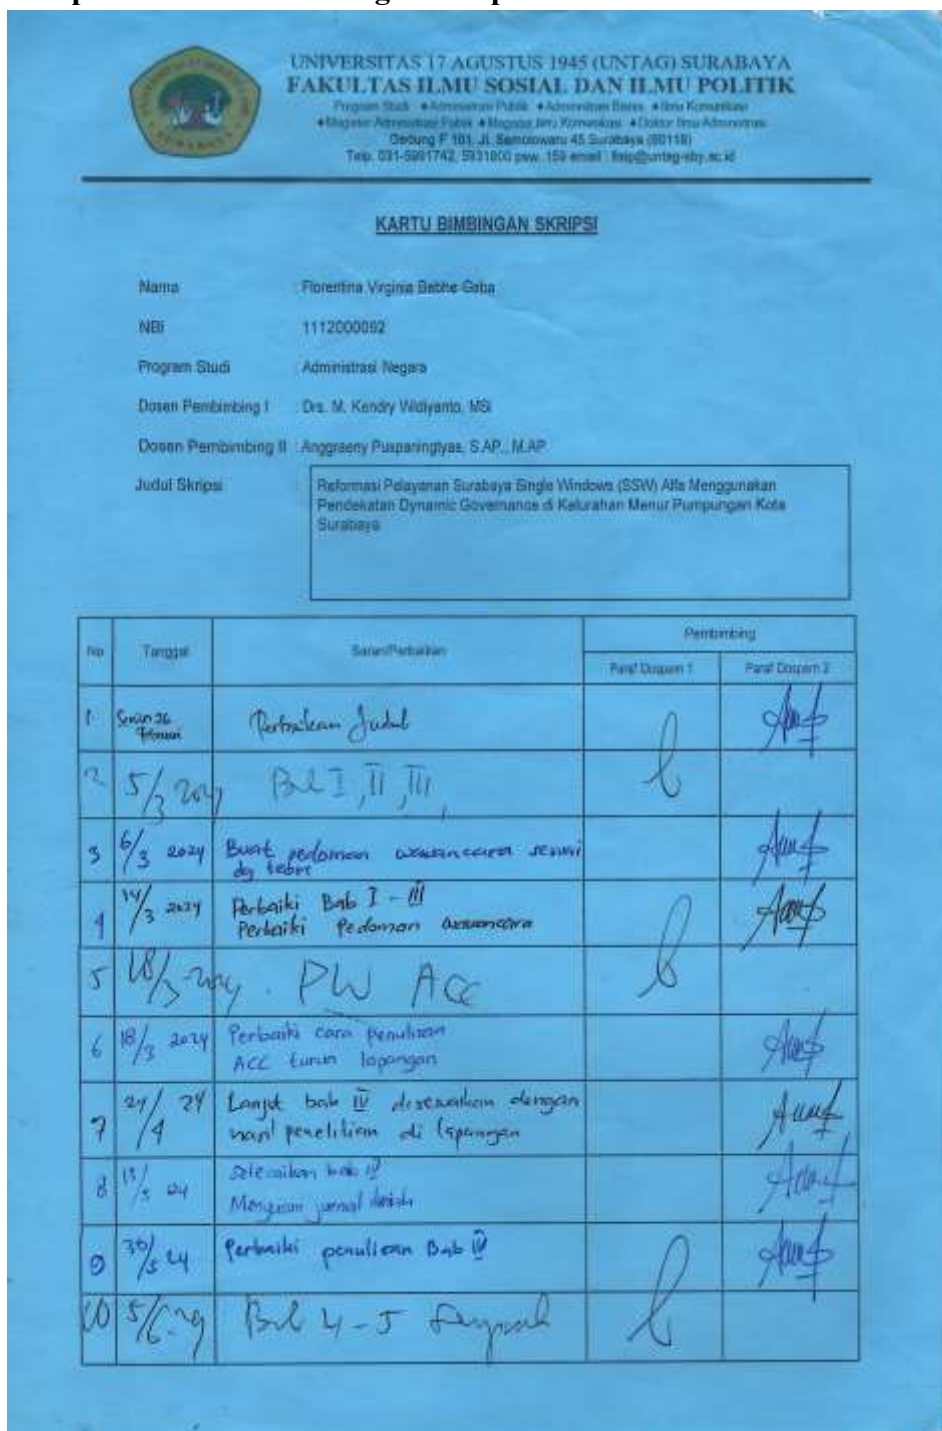 UNIVERSITAS 17 AGUSTUS 1945 (UNTAG) SURABAYA
FAKULTAS ILMU SOSIAL DAN ILMU POLITIK
Program Studi Administrasi Publik Administrasi Bisnis Ilmu Komunikasi
Magister Administrasi Publik Magister Ilmu Komunikasi Doktor Ilmu Administrasi
Gedung F 101, Jl. Semolowaru 45 Surabaya (60118)
Telp. 031-5991742, 5931800 psw. 159 email : fisip@untag-sby.ac.id
KARTU BIMBINGAN SKRIPSI
Nama : Florentina Virginia Bebhe Geba
NBI 1112000092
Program Studi : Administrasi Negara
Dosen Pembimbing I : Drs. M. Kendry Widiyanto, MSi
Dosen Pembimbing II : Anggraeny Puspaningtyas, S.AP., M.AP.
Judul Skripsi : Reformasi Pelayanan Surabaya Single Windows (SSW) Alfa Menggunakan
Pendekatan Dynamic Governance di Kelurahan Menur Pumpungan Kota
Surabaya
No Tanggal Saran/Perbaikan Pembimbing
Paraf Dospem 1 Paraf Dospem 2
1 Senin 26 Februari Perbaikan Judul
2 5/3 2024 Bab I, II, III,
3 6/3 2024 Buat pedoman wawancara sesuai
dg teori
4 14/3 2024 Perbaiki Bab I - III
Perbaiki Pedoman wawancara
5 18/3-2024. PW Acc
6 18/3 2024 Perbaiki cara penulisan
ACC turun lapangan
7 24/4 24 Lanjut bab IV disesuaikan dengan
hasil penelitian di lapangan
8 13/5 24 Selesaikan bab IV
Menyusun jurnal
9 30/5 24 Perbaiki penulisan Bab IV
10 5/6 Bab 4-5